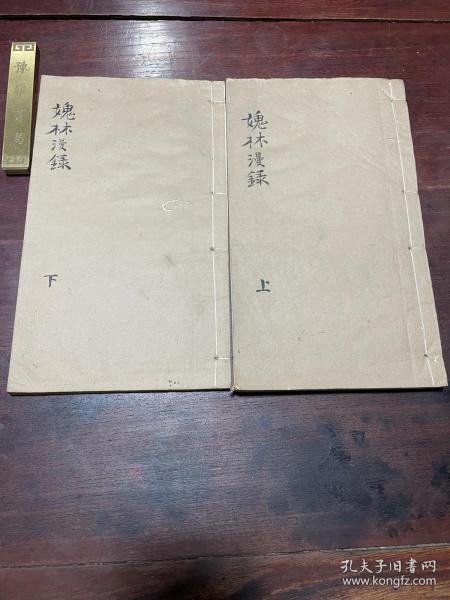 媿林漫録
上
媿林漫録
下
孔夫子旧书网
www.kongfz.com